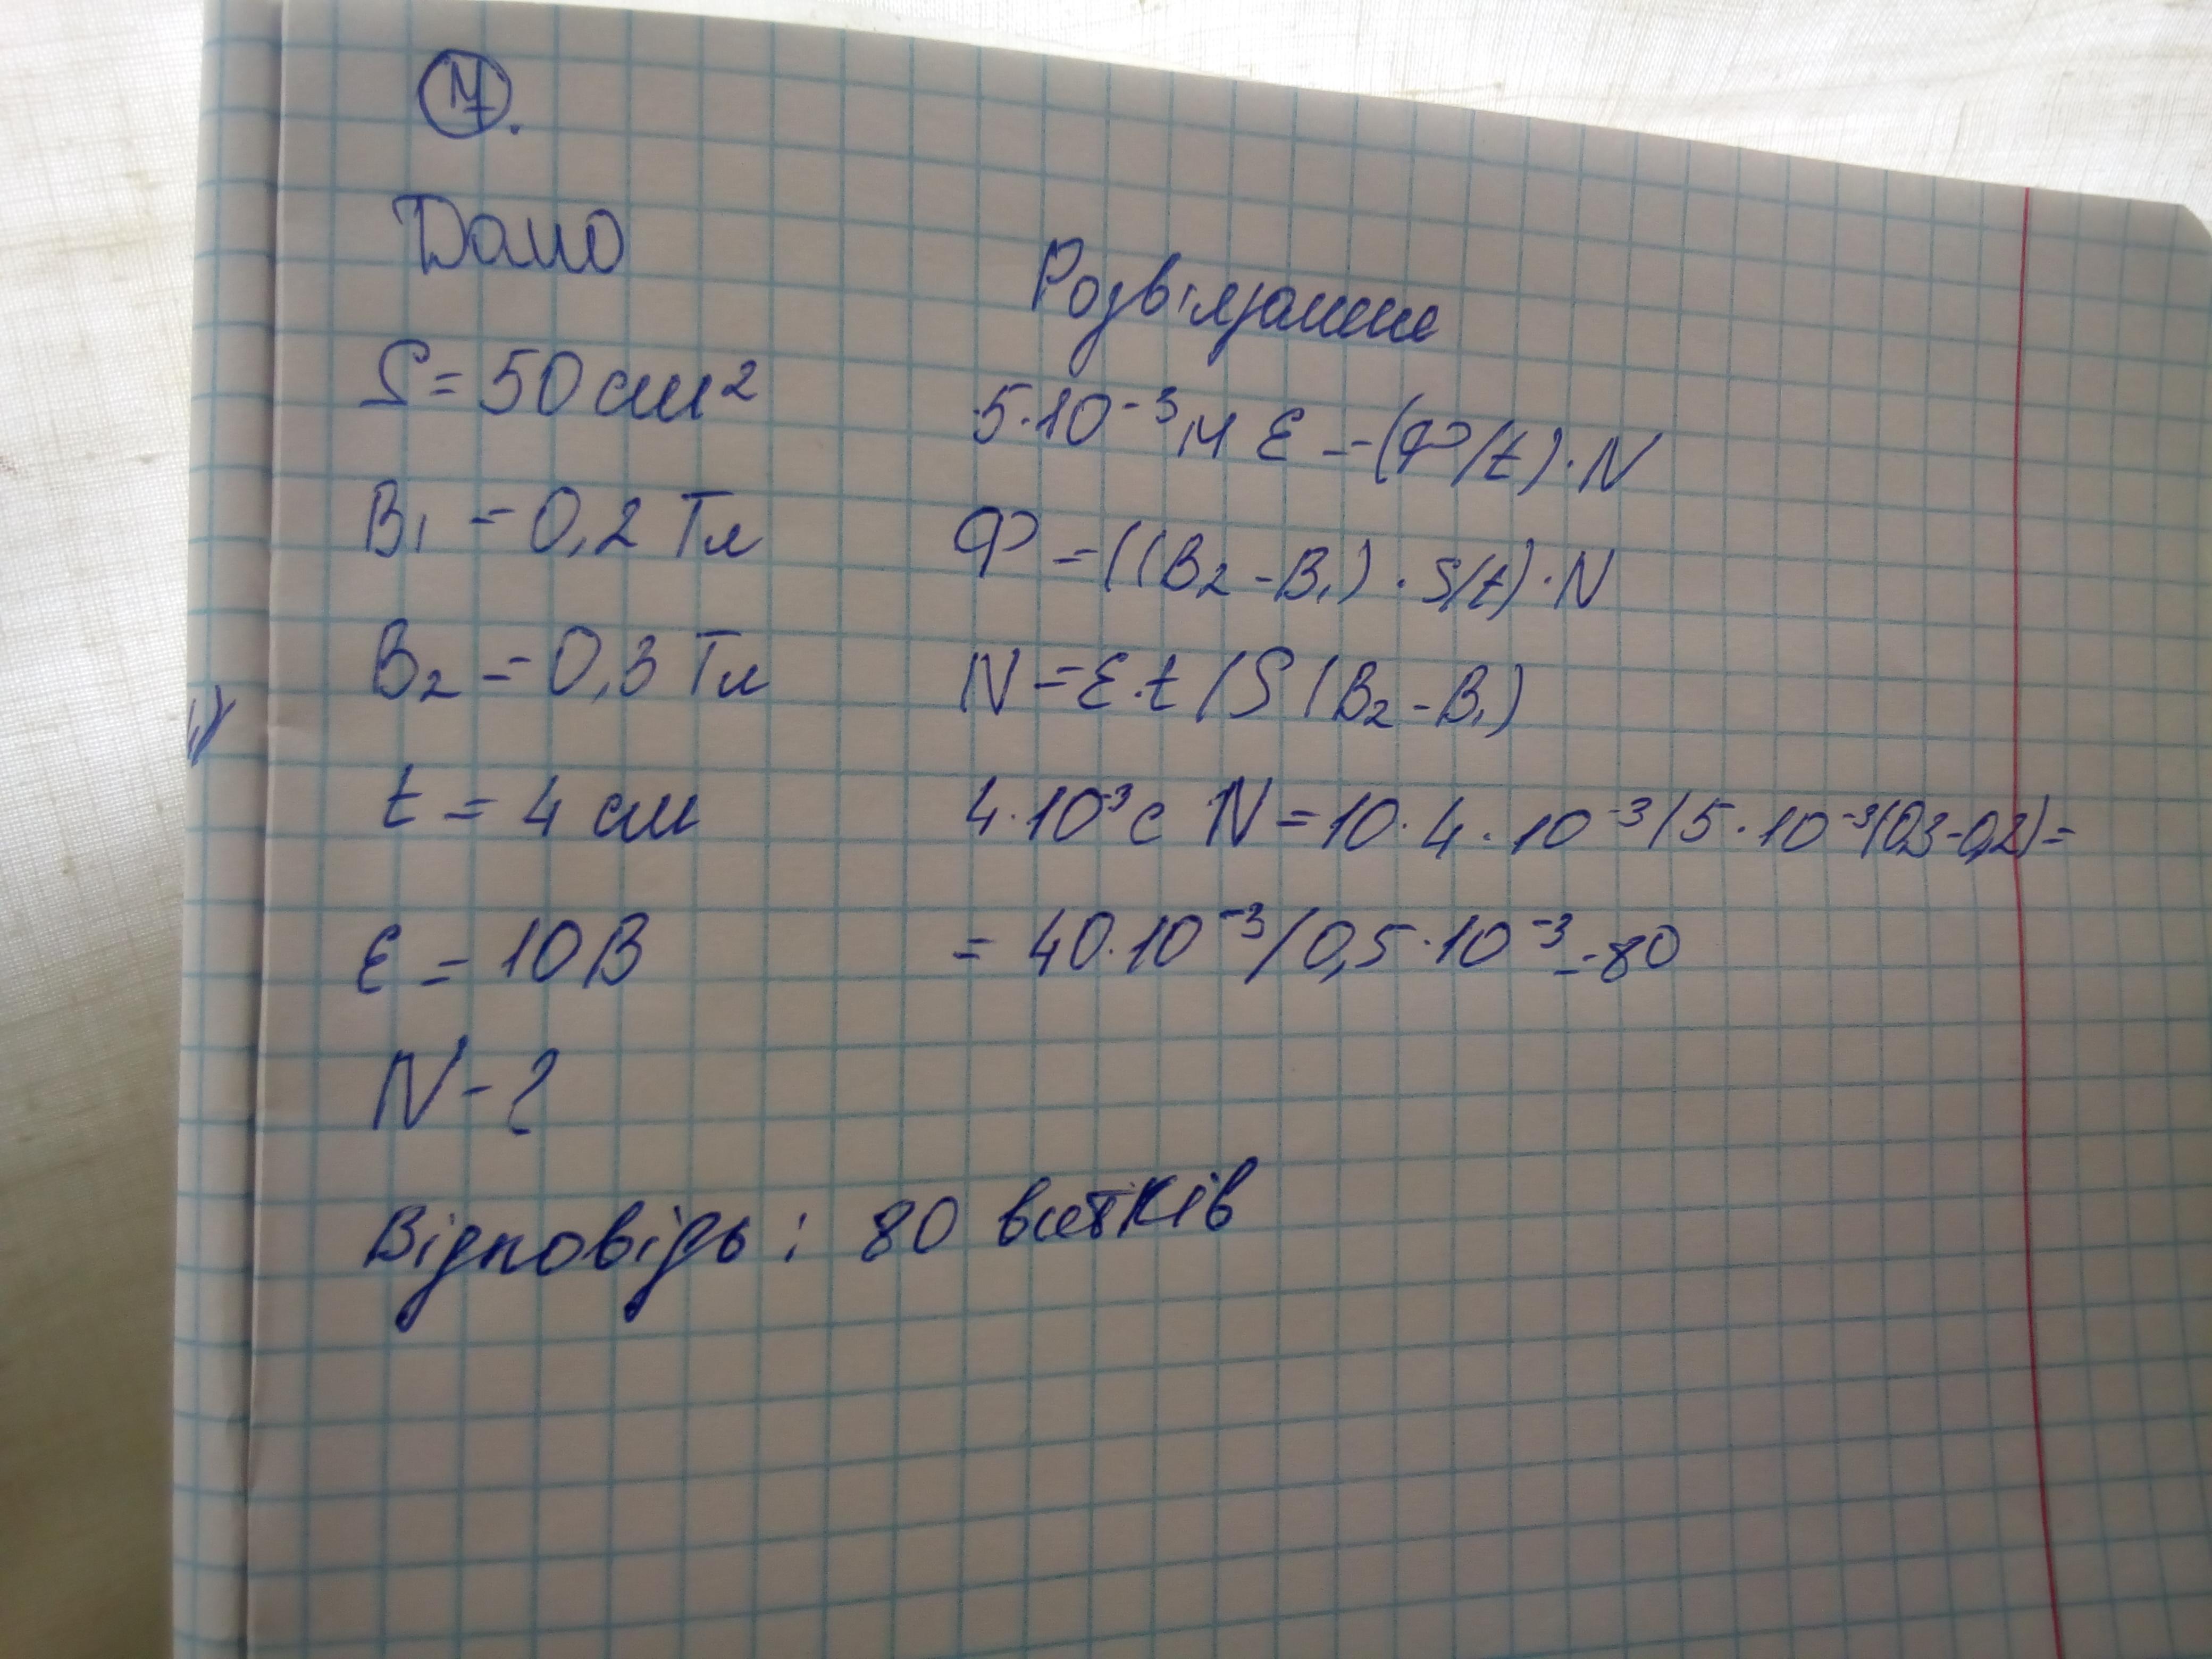 Дано
Розв'язання
S = 50 см²
5·10⁻³ м ε = (Ф/t)·N
B₁ = 0,2 Тл
Ф = ((B₂ - B₁)·S/t)·N
B₂ = 0,3 Тл
N = ε·t / S (B₂ - B₁)
t = 4 см
4·10⁻³ с N = 10·4·10⁻³/5·10⁻³(0,3-0,2) =
ε = 10 В
= 40·10⁻³/0,5·10⁻³ = 80
N - ?
Відповідь: 80 витків